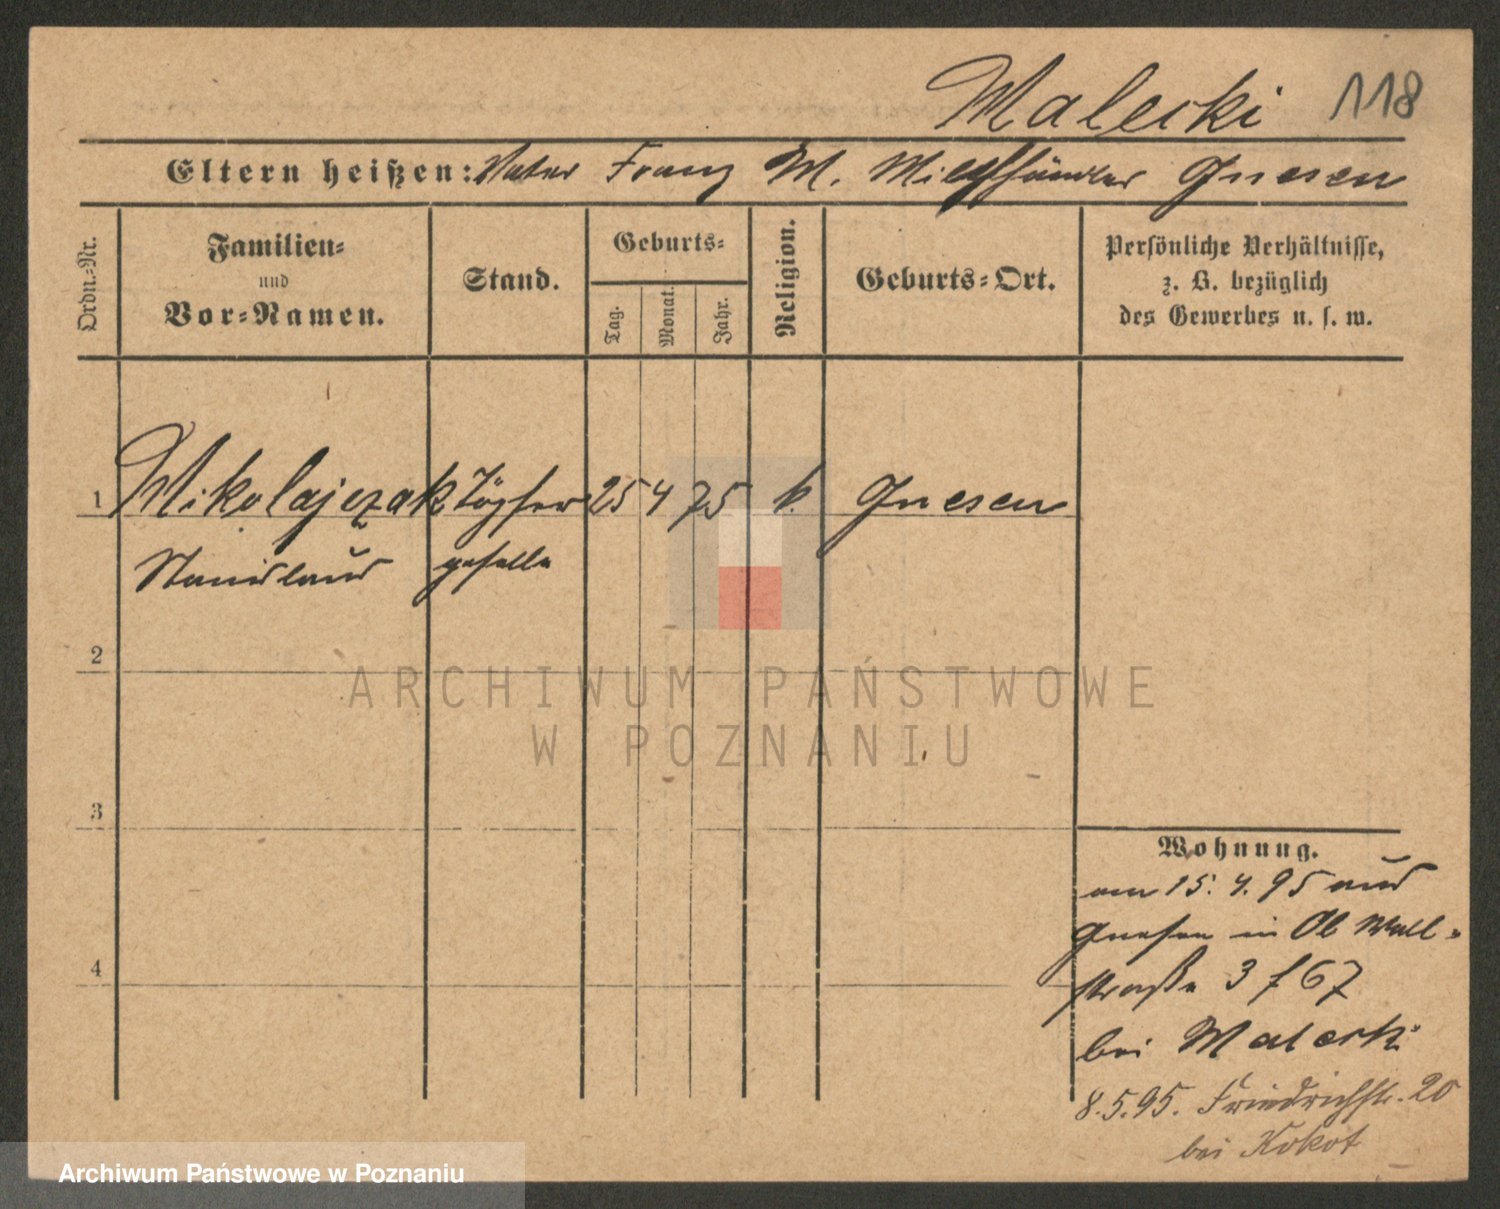 Malecki 118
Eltern heißen: Vater Franz M. Milchhändler Gnesen
Ordn.-Nr.
Familien-
und
Vor-Namen.
Stand.
Geburts-
Tag.
Monat.
Jahr.
Religion.
Geburts-Ort.
Persönliche Verhältnisse,
z. B. bezüglich
des Gewerbes u. s. w.
1 Mikolajczak Töpfer 25 4 75 k. Gnesen
Stanislaus geselle
2
3
4
Wohnung.
am 15. 4. 95 aus
Gnesen in Ob Wall-
straße 3 f 67
bei Malecki
8.5.95. Friedrichstr. 20
bei Kokot
ARCHIWUM PAŃSTWOWE
W POZNANIU
Archiwum Państwowe w Poznaniu